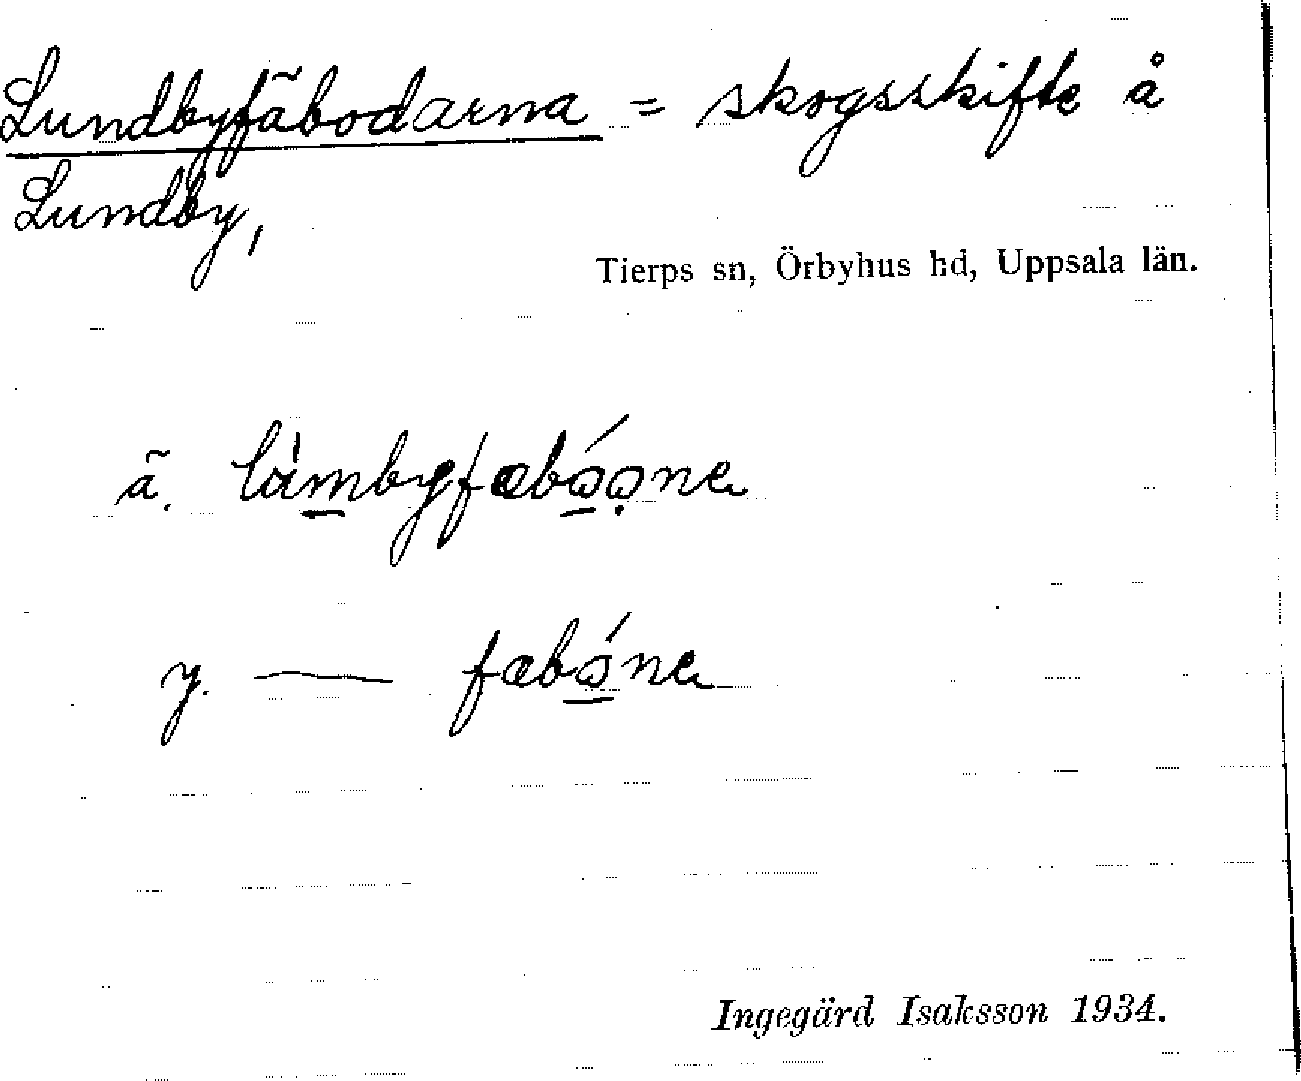 Lundbyfäbodarna = skogsskifte å
Lundby,
Tierps sn, Örbyhus hd, Uppsala län.
ä.
y. — fæbǫ́na
Ingegärd Isaksson 1934.